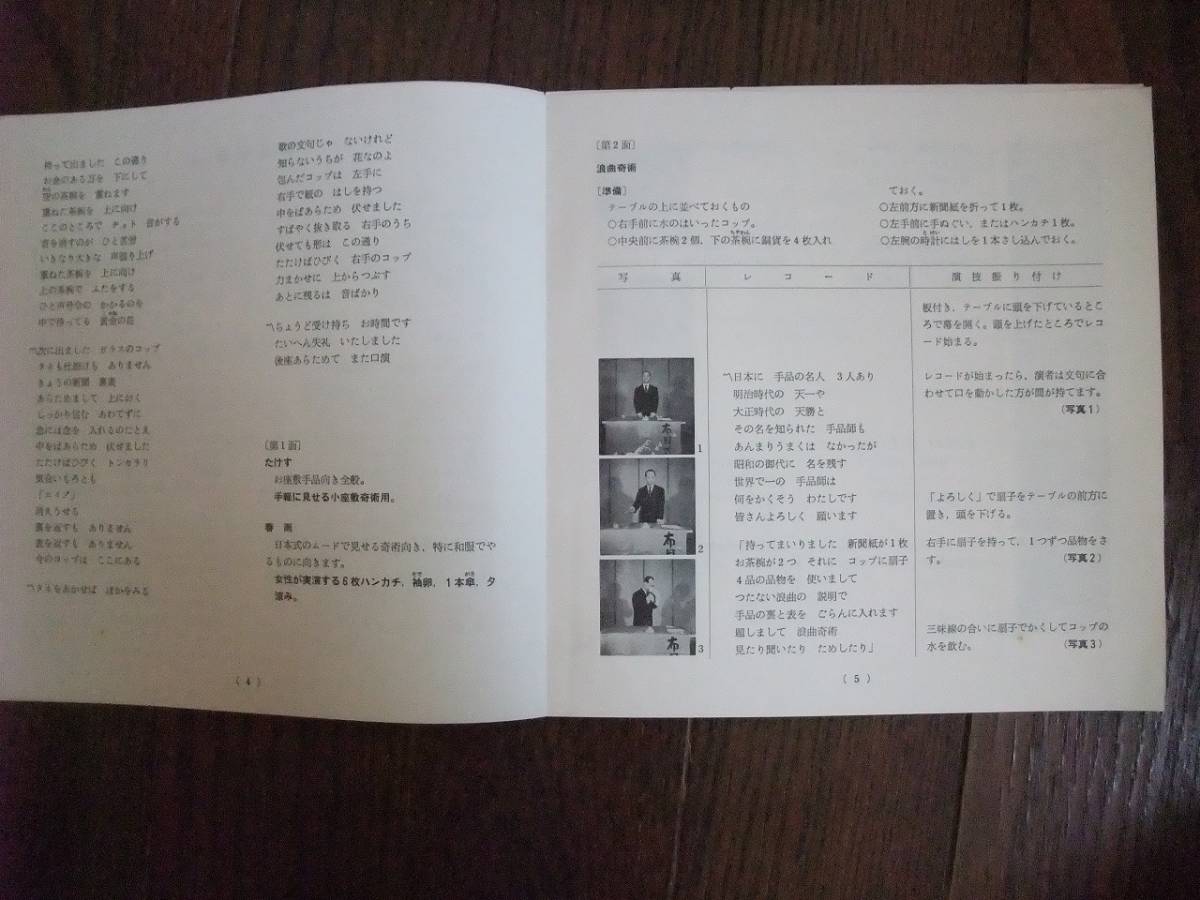 持って出ました この通り
お金のある方を 下にして
空の茶椀を 重ねます
重ねた茶椀を 上に向け
ここのところで チョト 音がする
音を消すのが ひと苦労
いきなり大きな 声張り上げ
重ねた茶椀を 上に向け
上の茶椀で ふたをする
ひと声号令の かかるのを
中で待ってる 黄金の花
〽次に出ました ガラスのコップ
タネも仕掛けも ありません
きょうの新聞 裏表
あらためまして 上におく
しっかり包む あわてずに
急には念を 入れるのたとえ
中をばあらため 伏せました
たたけばひびく トンカラリ
気合いもろとも
「エイッ」
消えうせる
裏を返すも ありません
表を返すも ありません
今のコップは ここにある
〽タネをあかせば ばかをみる
歌の文句じゃ ないけれど
知らないうちが 花なのよ
包んだコップは 左手に
右手で紙の はしを持つ
中をばあらため 伏せました
すばやく抜き取る 右手のうち
伏せても形は この通り
たたけばひびく 右手のコップ
力まかせに 上からつぶす
あとに残るは 音ばかり
〽ちょうど受け持ち お時間です
たいへん失礼 いたしました
後座あらためて また口演
〔第1面〕
たけす
お座敷手品向き全般。
手軽に見せる小座敷奇術用。
春雨
日本式のムードで見せる奇術向き,特に和服でや
るものに向きます。
女性が実演する6枚ハンカチ,袖卵,1本傘,夕
涼み。
(4)
〔第2面〕
浪曲奇術
〔準備〕
テーブルの上に並べておくもの
○右手前に水のはいったコップ。
○中央前に茶椀2個,下の茶椀に銅貨を4枚入れ
ておく。
○左前方に新聞紙を折って1枚。
○左手前に手ぬぐい,またはハンカチ1枚。
○左腕の時計にはしを1本さし込んでおく。
写真
レコード
演技振り付け
板付き,テーブルに頭を下げているとこ
ろで幕を開く。頭を上げたところでレコ
ード始まる。
〽日本に 手品の名人 3人あり
明治時代の 天一や
大正時代の 天勝と
その名を知られた 手品師も
あんまりうまくは なかったが
昭和の御代に 名を残す
世界で一の 手品師は
何をかくそう わたしです
皆さんよろしく 願います
「持ってまいりました 新聞紙が1枚
お茶椀が2つ それに コップに扇子
4品の品物を 使いまして
つたない浪曲の 説明で
手品の裏と表を ごらんに入れます
題しまして 浪曲奇術
見たり聞いたり ためしたり」
レコードが始まったら,演者は文句に合
わせて口を動かした方が間が持てます。
(写真1)
「よろしく」で扇子をテーブルの前方に
置き,頭を下げる。
右手に扇子を持って,1つずつ品物をさ
す。 (写真2)
三味線の合いに扇子でかくしてコップの
水を飲む。 (写真3)
1
2
3
(5)